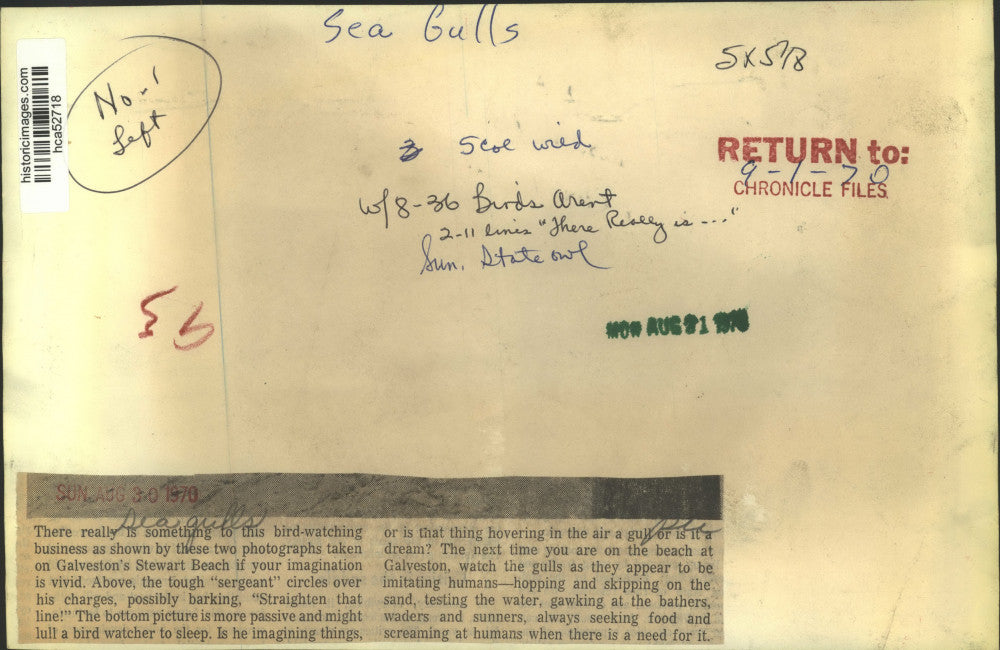 Sea Gulls
5x5⅞
historicimages.com
hca52718
No-1
Left
5 col wide
RETURN to:
9-1-70
CHRONICLE FILES
w/8-36 Birds Arent
2-11 lines "There Really is ---"
Sun. State owl
MON AUG 31 1970
SUN. AUG 30 1970
Sea gulls
There really is something to this bird-watching
business as shown by these two photographs taken
on Galveston's Stewart Beach if your imagination
is vivid. Above, the tough "sergeant" circles over
his charges, possibly barking, "Straighten that
line!" The bottom picture is more passive and might
lull a bird watcher to sleep. Is he imagining things,
or is that thing hovering in the air a gull or is it a
dream? The next time you are on the beach at
Galveston, watch the gulls as they appear to be
imitating humans—hopping and skipping on the
sand, testing the water, gawking at the bathers,
waders and sunners, always seeking food and
screaming at humans when there is a need for it.